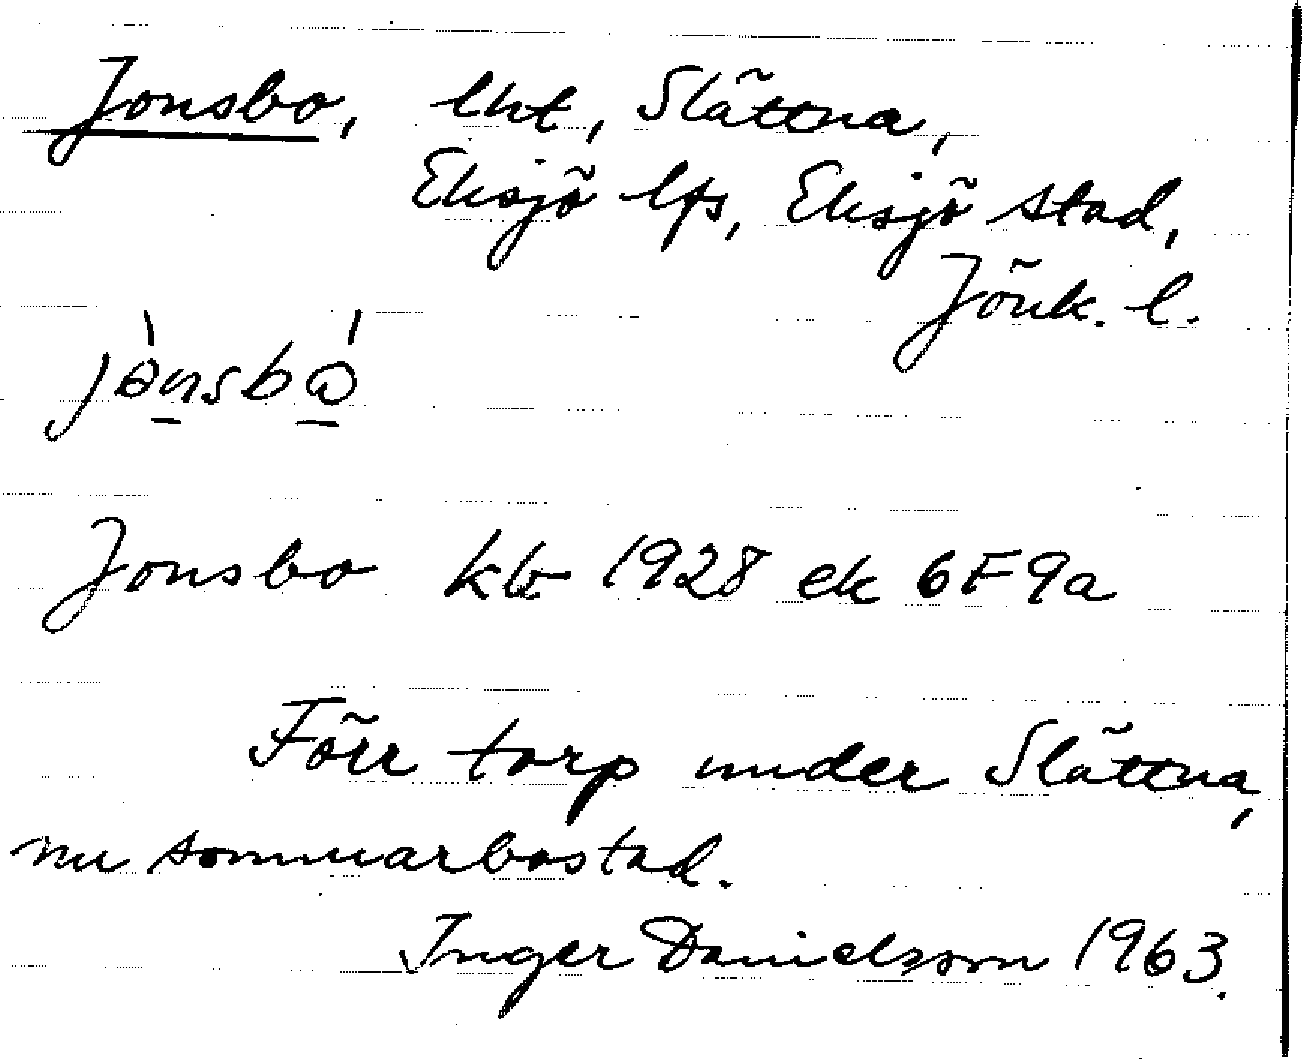 Jonsbo, lht, Slättna,
Eksjö lfs, Eksjö stad,
Jönk. l.
Jonsbo kb 1928 ek 6F9a
Förr torp under Slättna,
nu sommarbostad.
Inger Danielsson 1963.